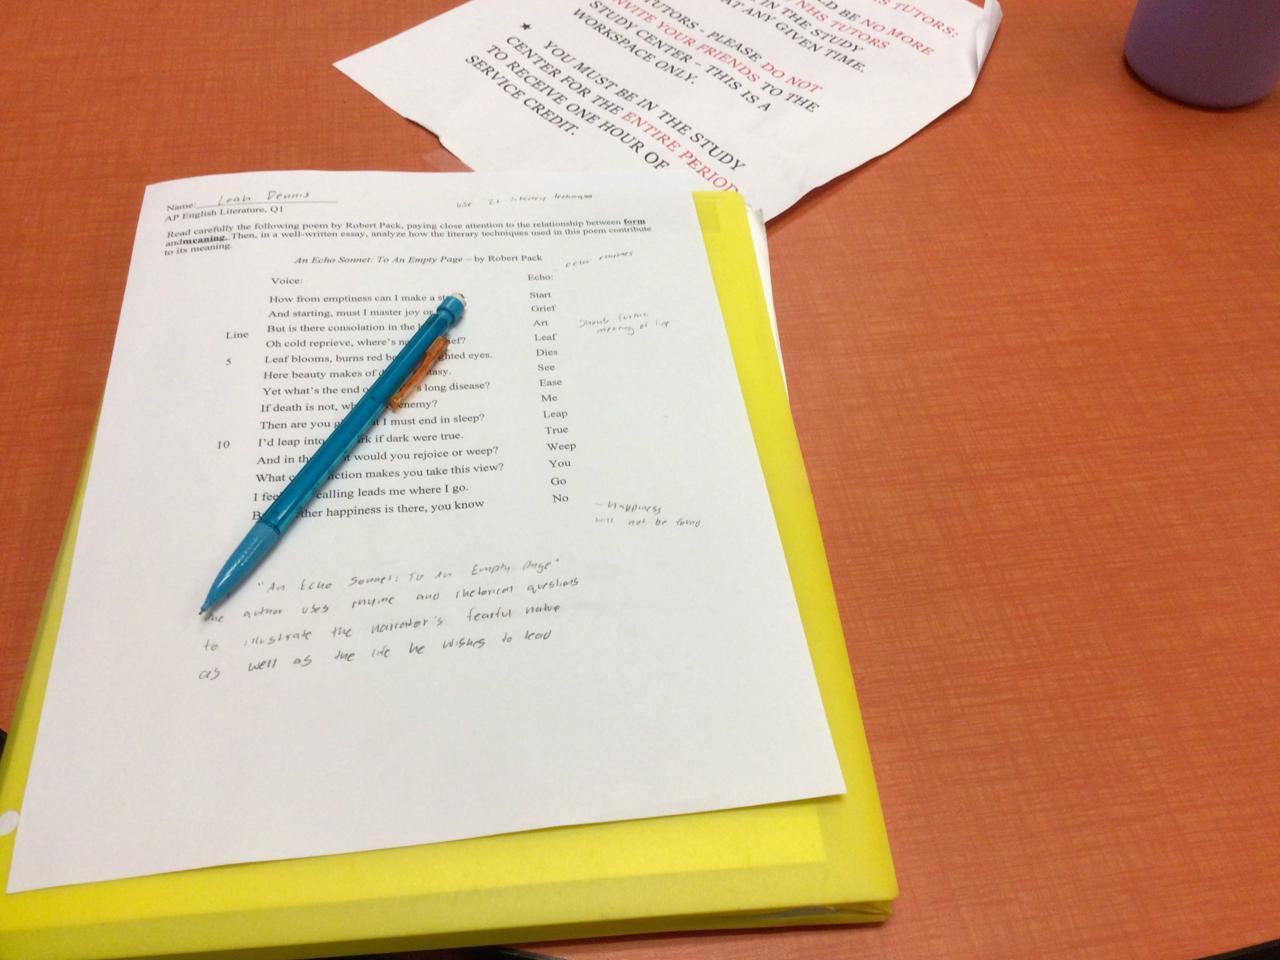 S TUTORS:
LD BE NO MORE
NHS TUTORS
IN THE STUDY
AT ANY GIVEN TIME.
TUTORS - PLEASE DO NOT
INVITE YOUR FRIENDS TO THE
STUDY CENTER – THIS IS A
WORKSPACE ONLY.
★ YOU MUST BE IN THE STUDY
CENTER FOR THE ENTIRE PERIOD
TO RECEIVE ONE HOUR OF
SERVICE CREDIT.
Name: Leah Dennis
use 2+ literary techniques
AP English Literature, Q1
Read carefully the following poem by Robert Pack, paying close attention to the relationship between form
andmeaning. Then, in a well-written essay, analyze how the literary techniques used in this poem contribute
to its meaning.
An Echo Sonnet: To An Empty Page – by Robert Pack
Voice: Echo: echo rhymes
How from emptiness can I make a st Start
And starting, must I master joy or Grief
But is there consolation in the Art
Line
Oh cold reprieve, where's na ief? Leaf
meaning of
5 Leaf blooms, burns red b ghted eyes. Dies
Here beauty makes of d tasy. See
Yet what's the end o 's long disease? Ease
If death is not, wh enemy? Me
Then are you g t I must end in sleep? Leap
10 I'd leap into rk if dark were true. True
And in th would you rejoice or weep? Weep
What c iction makes you take this view? You
I fee calling leads me where I go. Go
B ther happiness is there, you know No
- Happiness
will not be found
"An Echo Sonnet: To An Empty Page"
The author uses rhyme and rhetorical questions
to illustrate the narrator's fearful nature
as well as the life he wishes to lead